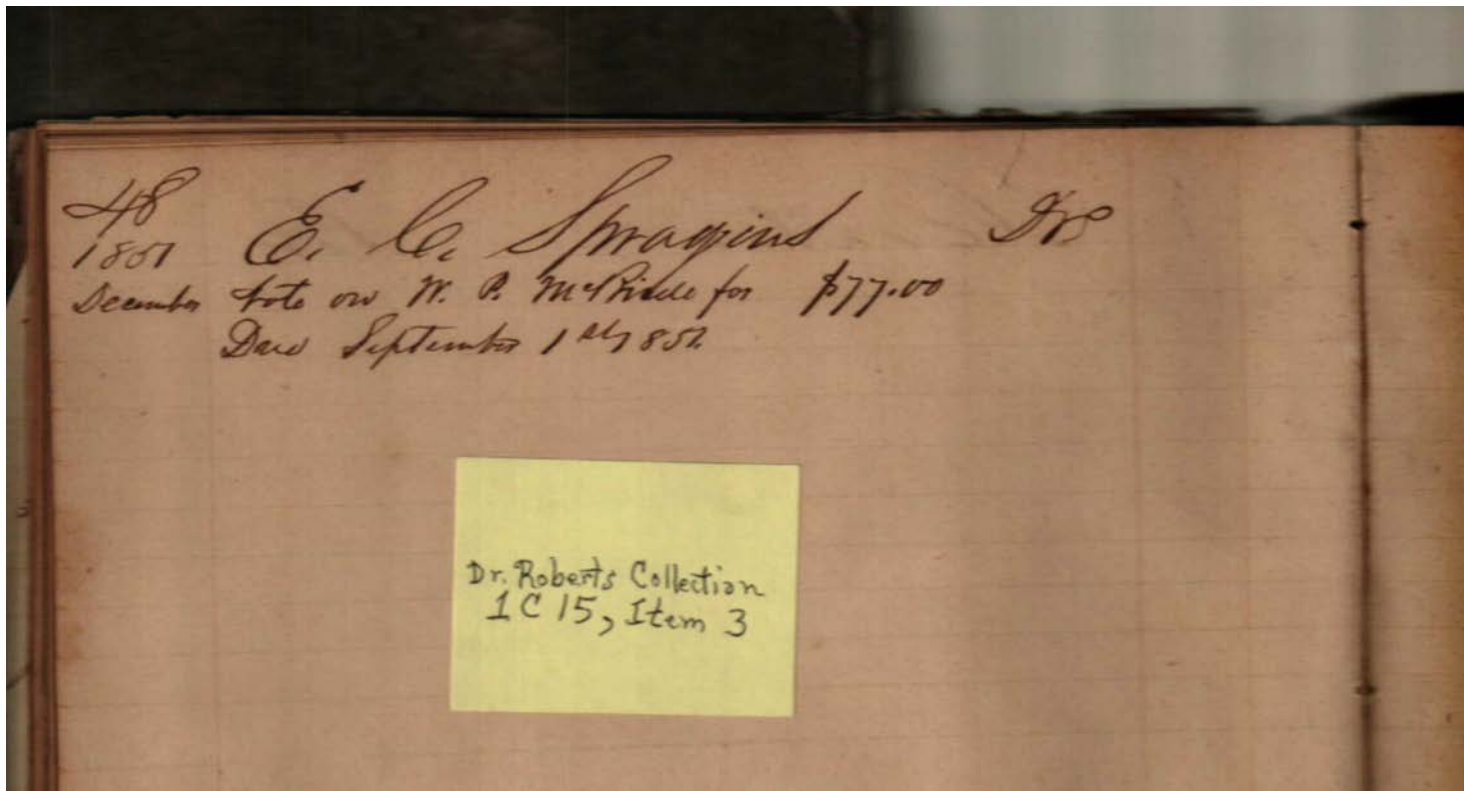 48
1851 E. C. Spragins Dr
December Note on W. P. for $77.00
Due September 1st 1852
Dr. Roberts Collection
1 C 15, Item 3